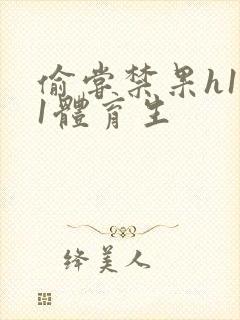 偷嘗禁果h1
1體育生
绛美人